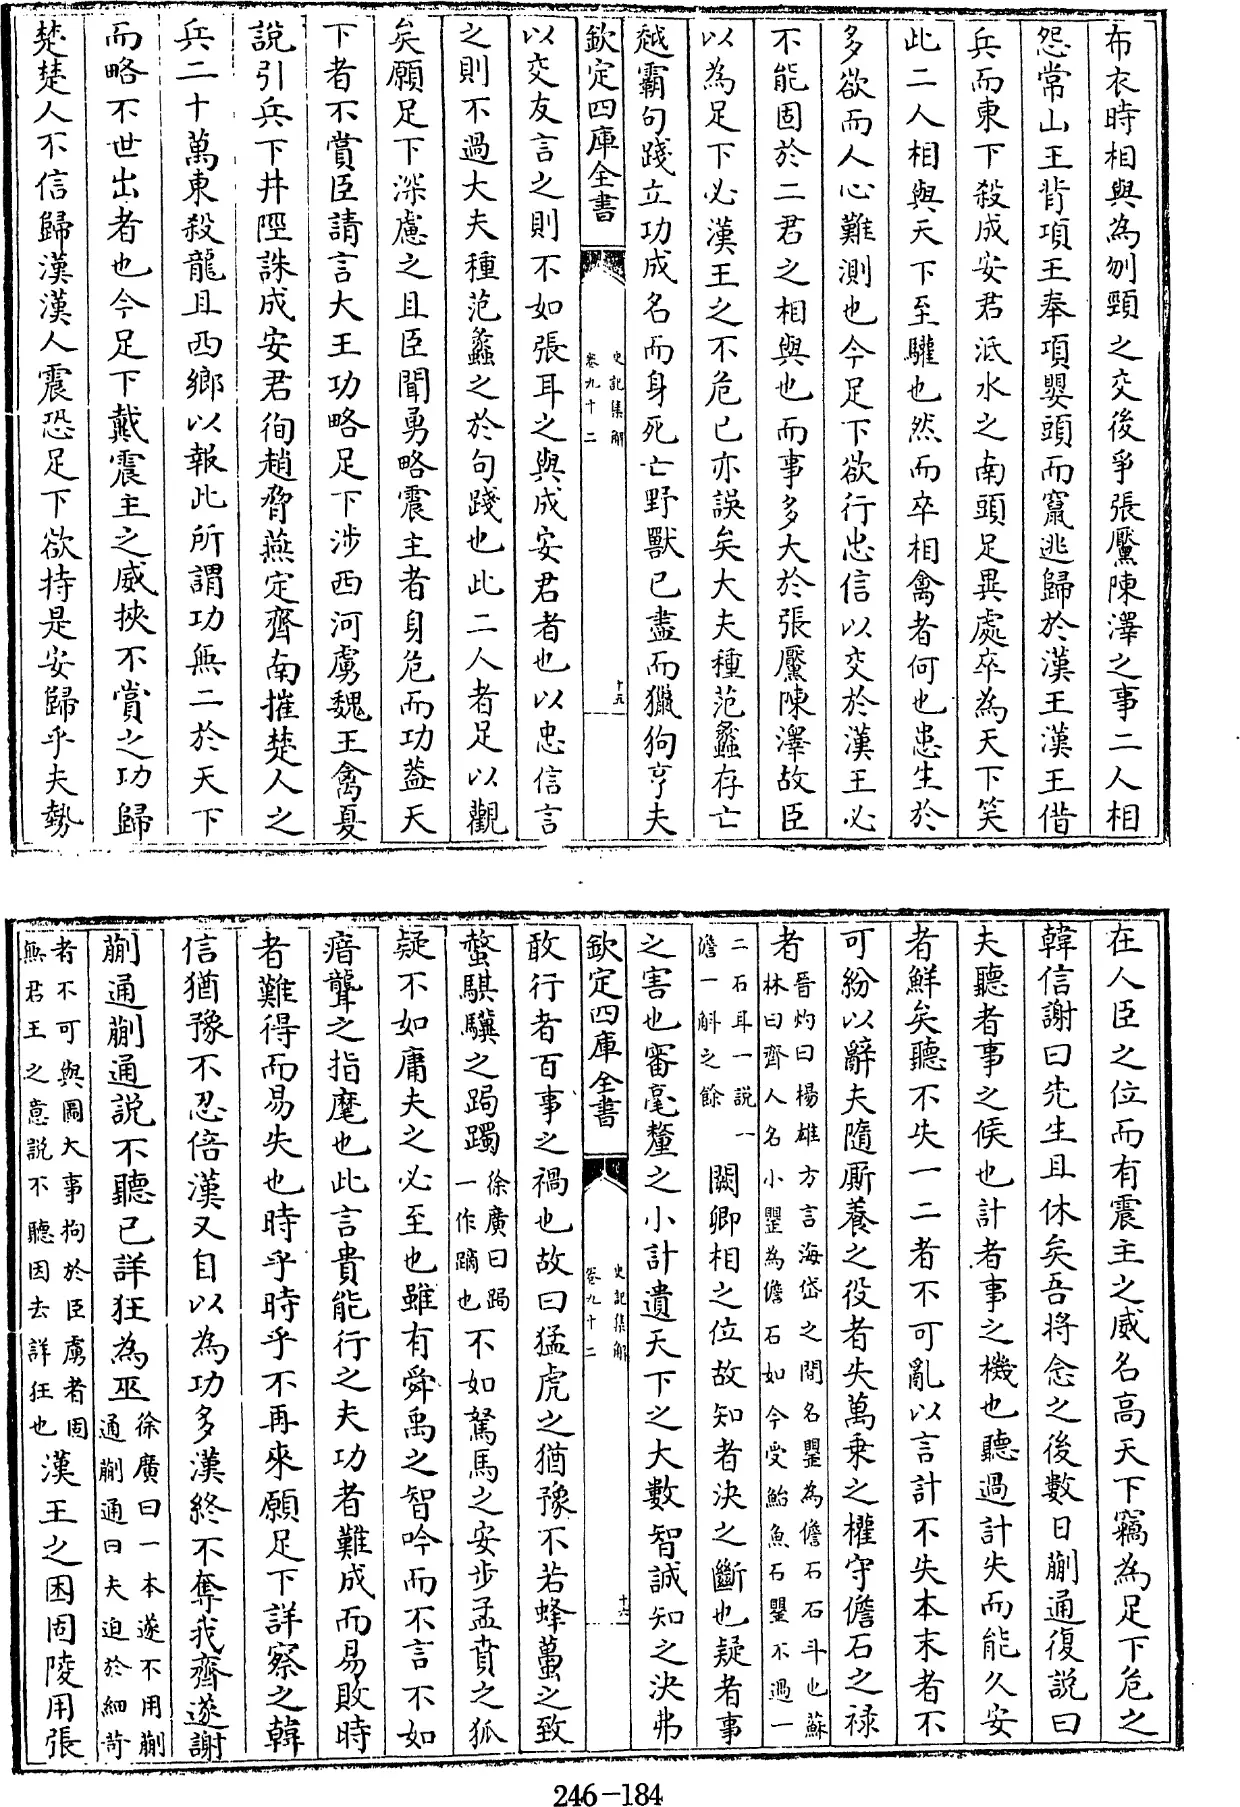 布衣時相與為刎頸之交後爭張黶陳澤之事二人相
怨常山王背項王奉項嬰頭而竄逃歸於漢王漢王借
兵而東下殺成安君泜水之南頭足異處卒為天下笑
此二人相與天下至驩也然而卒相禽者何也患生於
多欲而人心難測也今足下欲行忠信以交於漢王必
不能固於二君之相與也而事多大於張黶陳澤故臣
以為足下必漢王之不危已亦誤矣大夫種范蠡存亡
越霸句踐立功成名而身死亡野獸已盡而獵狗亨夫
欽定四庫全書
史記集解
卷九十二
十五
以交友言之則不如張耳之與成安君者也以忠信言
之則不過大夫種范蠡之於句踐也此二人者足以觀
矣願足下深慮之且臣聞勇略震主者身危而功葢天
下者不賞臣請言大王功略足下涉西河虜魏王禽夏
說引兵下井陘誅成安君徇趙脅燕定齊南摧楚人之
兵二十萬東殺龍且西鄉以報此所謂功無二於天下
而略不世出者也今足下戴震主之威挾不賞之功歸
楚楚人不信歸漢漢人震恐足下欲持是安歸乎夫勢
在人臣之位而有震主之威名高天下竊為足下危之
韓信謝曰先生且休矣吾將念之後數日蒯通復說曰
夫聽者事之候也計者事之機也聽過計失而能久安
者鮮矣聽不失一二者不可亂以言計不失本末者不
可紛以辭夫隨厮養之役者失萬乗之權守儋石之禄
者晉灼曰楊雄方言海岱之間名罌為儋石石斗也蘇
林曰齊人名小罌為儋石如今受鮐魚石罌不過一
二石耳一說一
儋一斛之餘闕卿相之位故知者決之斷也疑者事
之害也審毫釐之小計遺天下之大數智誠知之決弗
欽定四庫全書
史記集解
卷九十二
十六
敢行者百事之禍也故曰猛虎之猶豫不若蜂蠆之致
螫騏驥之跼躅徐廣曰跼
一作蹢也不如駑馬之安步孟賁之狐
疑不如庸夫之必至也雖有舜禹之智吟而不言不如
瘖聾之指麾也此言貴能行之夫功者難成而易敗時
者難得而易失也時乎時乎不再來願足下詳察之韓
信猶豫不忍倍漢又自以為功多漢終不奪我齊遂謝
蒯通蒯通說不聽已詳狂為巫徐廣曰一本遂不用蒯
通蒯通曰夫迫於細苛
者不可與圖大事拘於臣虜者固
無君王之意說不聽因去詳狂也漢王之困固陵用張
246-184